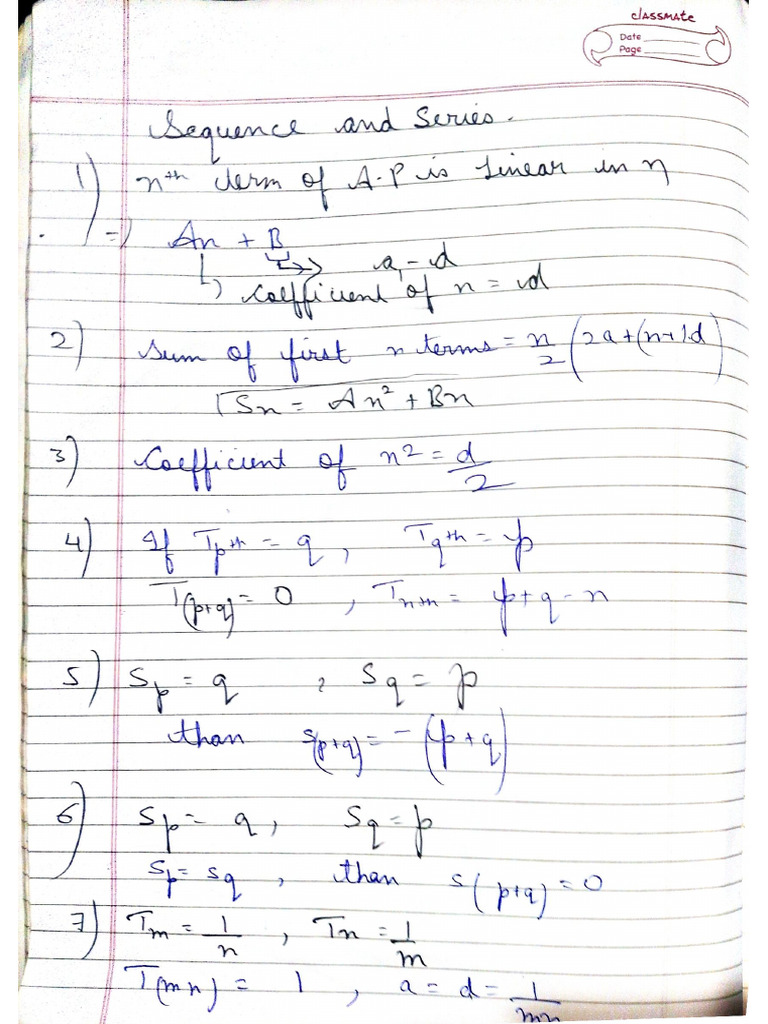 classmate
Date
Page
Sequence and Series.
1) nth term of A.P is linear in n
=) An + B
a - d
coefficient of n = d
2) Sum of first n terms = n/2 (2a+(n+1)d)
Sn = An² + Bn
3) Coefficient of n² = d/2
4) If Tpth = q, Tqth = p
T(p+q) = 0 , Tnth = p+q-n
5) Sp = q , Sq = p
than S(p+q) = -(p+q)
6) Sp = q, Sq = p
Sp = Sq , than S(p+q) = 0
7) Tm = 1/n , Tn = 1/m
T(mn) = 1 , a = d = 1/mn